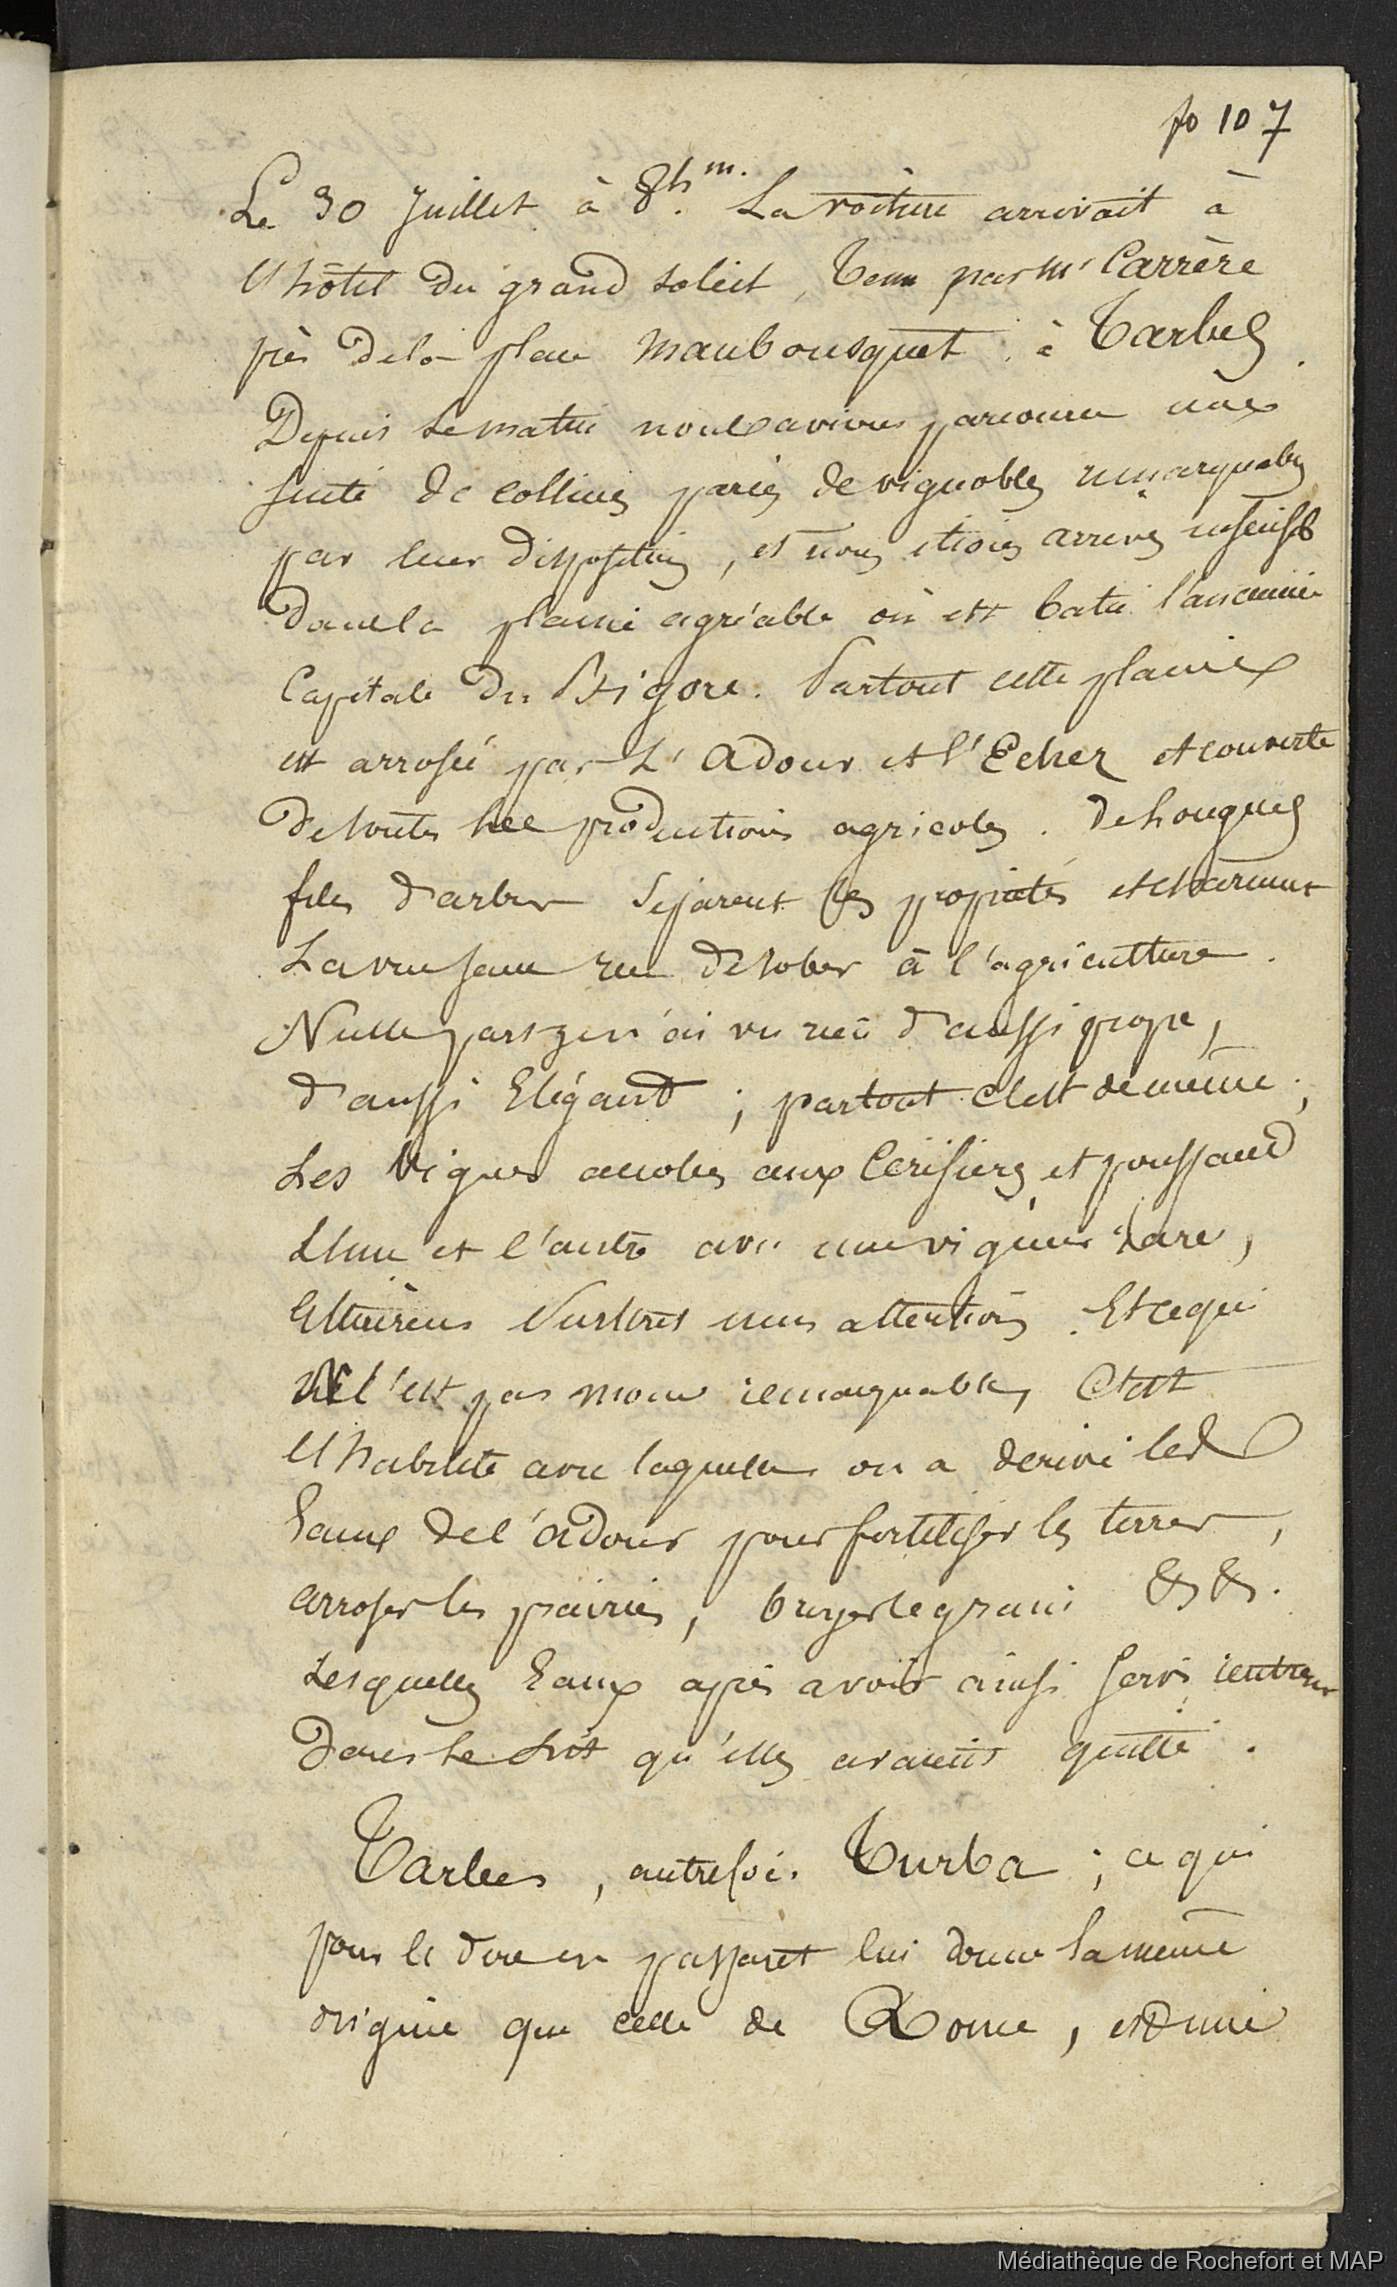 fo 107
Le 30 Juillet à 8h m. La voiture arrivait à
l'hôtel du grand soleil, tenu par Mr Carrère
près de la place Maubousquet à Tarbes.
Depuis le matin nous avions parcouru une
suite de collines parées de vignobles remarquables
par leur disposition, et nous étions arrivés insensiblt
dans la plaine agréable où est batie l'ancienne
Capitale du Bigore. Partout cette plaine
est arrosée par L'Adour et l'Echez et couverte
de toutes les productions agricoles. De longues
files d'arbres séparent les propriétés et charment
La vue sans rien dérober à l'agriculture.
Nulle part je n'ai vu rien d'aussi propre,
d'aussi Elégant ; partout c'est de même ;
Les Vignes accolées aux Cerisiers et poussand
L'une et l'autre avec une vigueur rare,
attirèrent surtout mes attentions. Et ce qui
n'est pas moins remarquable, C'est
l'habileté avec laquelle on a dérivé les
Eaux de l'adour pour fertiliser les terres,
arroser les prairies, broyer le grain &a &a.
Lesquelles Eaux après avoir ainsi servi rentrent
Dans le lit qu'elles avaient quitté.
Tarbes, autrefois Turba ; ce qui
pour le dire en passant lui donne la même
origine que celle de Rome, est une